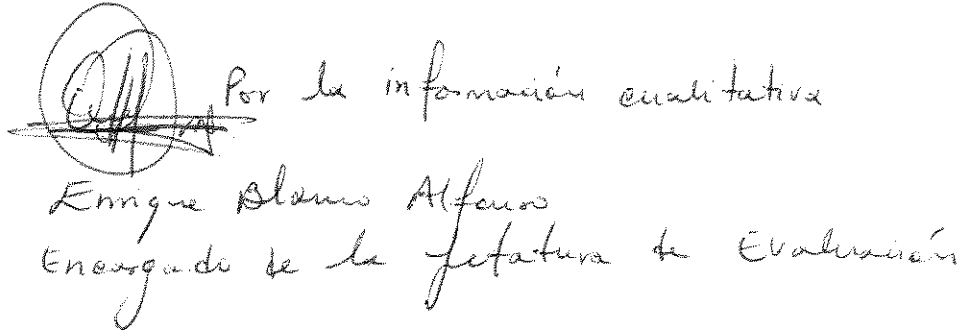 Por la información cualitativa
Enrique Blanco Alfonso
Encargado de la jefatura de Evaluación